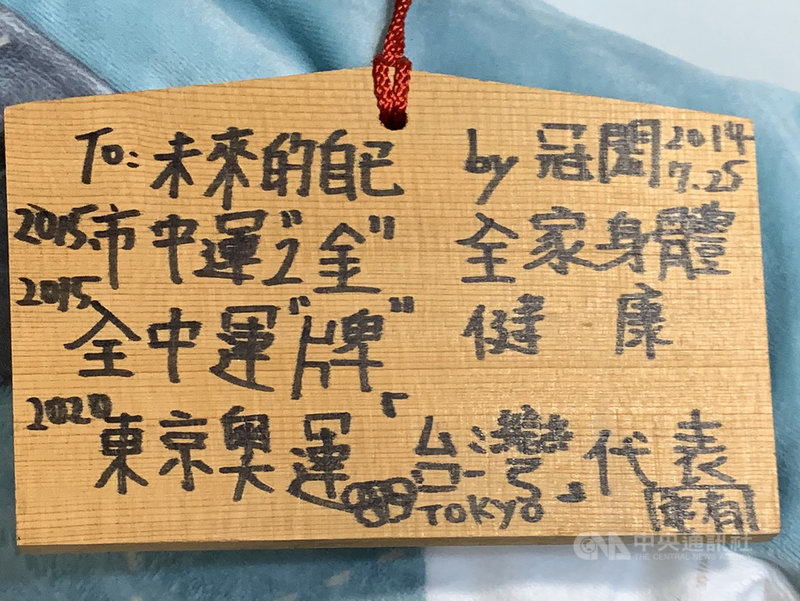 To: 未來的自己
2015 市中運"2金"
2015
全中運"牌"
by 冠閎 2014
7.25
全家身體
健康
2020 東京奧運「台灣」代表
TOKYO
CNA 中央通訊社
THE CENTRAL NEWS AGENCY